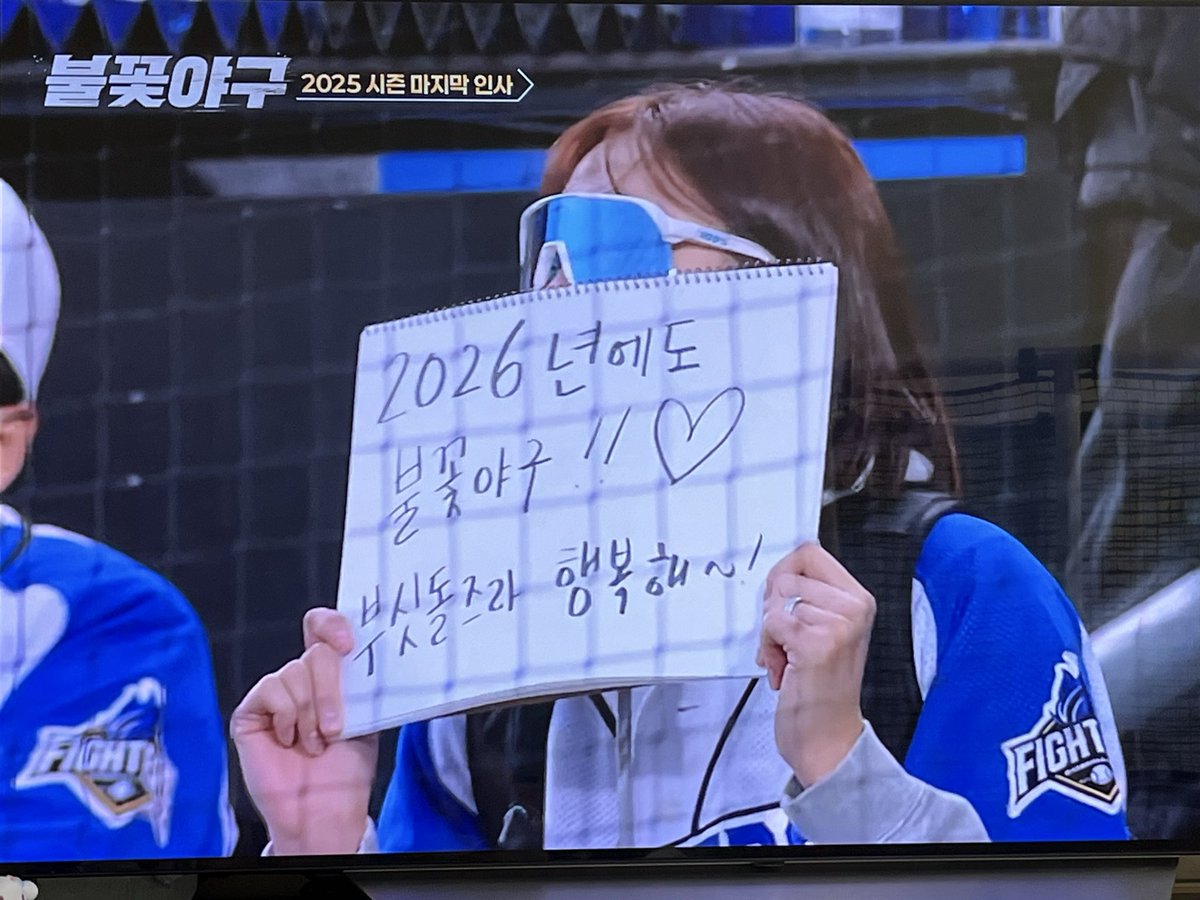 불꽃야구 2025 시즌 마지막 인사
2026년에도
불꽃야구!! ♡
부싯돌즈라 행복해~!
FIGHT
FIGHT